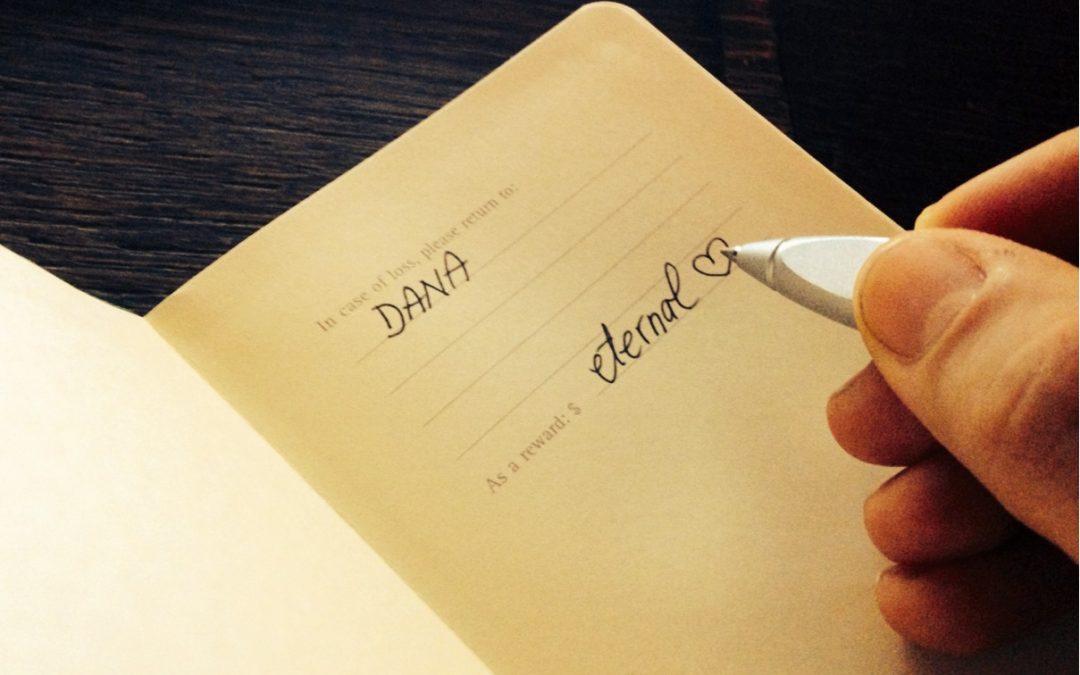 In case of loss, please return to:
DANA
As a reward: $ eternal ♡